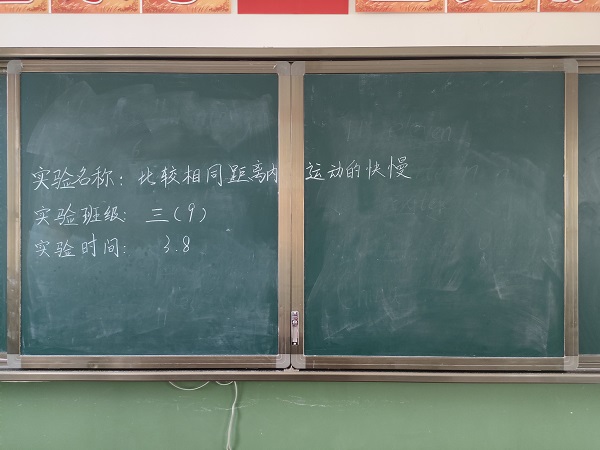 实验名称：比较相同距离内运动的快慢
实验班级：三（9）
实验时间：3.8